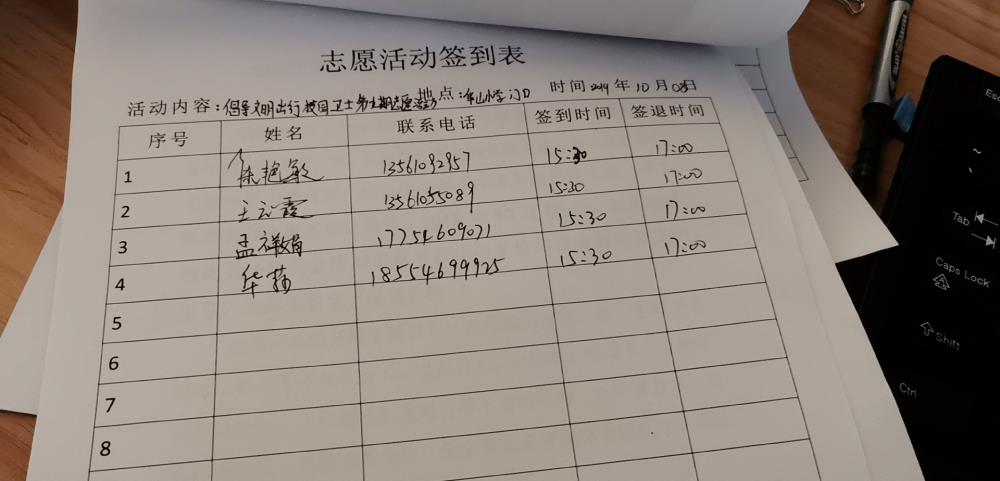 志愿活动签到表
活动内容：倡导文明出行 校园卫士 地点：牟山小学门口 时间2019年10月08日
序号 姓名 联系电话 签到时间 签退时间
1 徐艳敏 13561092957 15:30 17:00
2 王 霞 13561055089 15:30 17:00
3 孟祥娟 17754609071 15:30 17:00
4 华 18554699925 15:30 17:00
5
6
7
8
Esc
~
Tab
Caps Lock
Shift
Ctrl